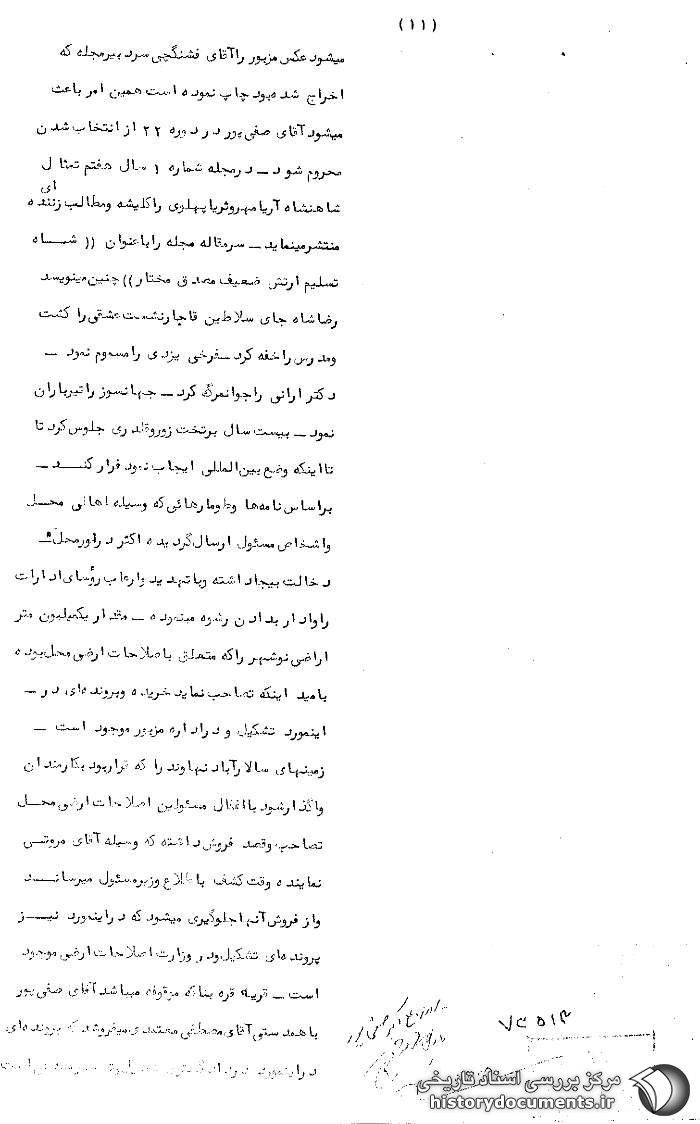 (۱۱)
میشود عکس مزبور راآقای فشنگچی سرد بیرمجله که
اخراج شده‌بود چاپ نموده است همین امر باعث
میشود آقای صفی‌پور در دوره ۲۲ از انتخاب شدن
محروم شود ــ درمجله شماره ۱ سال هفتم تمثال
شاهنشاه آریامهروثریاپهلوی راکلیشه ومطالب زننده ای
منتشرمینماید ــ سرمقاله مجله راباعنوان (( شاه
تسلیم ارتش ضعیف مصدق مختار)) چنین مینویسد
رضاشاه جای سلاطین قاجارنشست عشقی را کشت
ومدرس راخفه کرد ــ فرخی یزدی رامسموم نمود ــ
دکتر ارانی راجوانمرگ کرد ــ جهانسوز راتیرباران
نمود ــ بیست سال برتخت زوروقلدری جلوس کرد تا
تااینکه وضع بین‌المللی ایجاب نمود فرار کند ــ
براساس نامه‌ها وطومارهائی‌که وسیله اهالی محل
واشخاص مسئول ارسال گردیده اکثر درامورمحل
دخالت بیجاداشته وباتهدید وارعاب رؤسای ادارات
راوادار بدادن رشوه مینموده ــ مقدار یکمیلیون متر
اراضی نوشهر راکه متعلق باصلاحات ارضی محل بوده
بامید اینکه تصاحب نماید خریده وپرونده‌ای در ــ
اینمورد تشکیل و دراداره مزبور موجود است ــ
زمینهای سالارآباد نهاوند را که قراربود بکارمندان
واگذارشود بااغفال مسئولین اصلاحات ارضی محل
تصاحب وقصد فروش داشته که وسیله آقای مروتی
نماینده وقت کشف باطلاع وزیرمسئول میرساند
واز فروش آنها جلوگیری میشود که دراینمورد نیز
پرونده‌ای تشکیل ودر وزارت اصلاحات ارضی موجود
است ــ قریه قره بناکه موقوفه میباشد آقای صفی پور
باهمدستی آقای مصطفی معتمدی میفروشد که پرونده‌ای
دراینمورد است
۷۴۵۱۳
مرکز بررسی اسناد تاریخی
historydocuments.ir